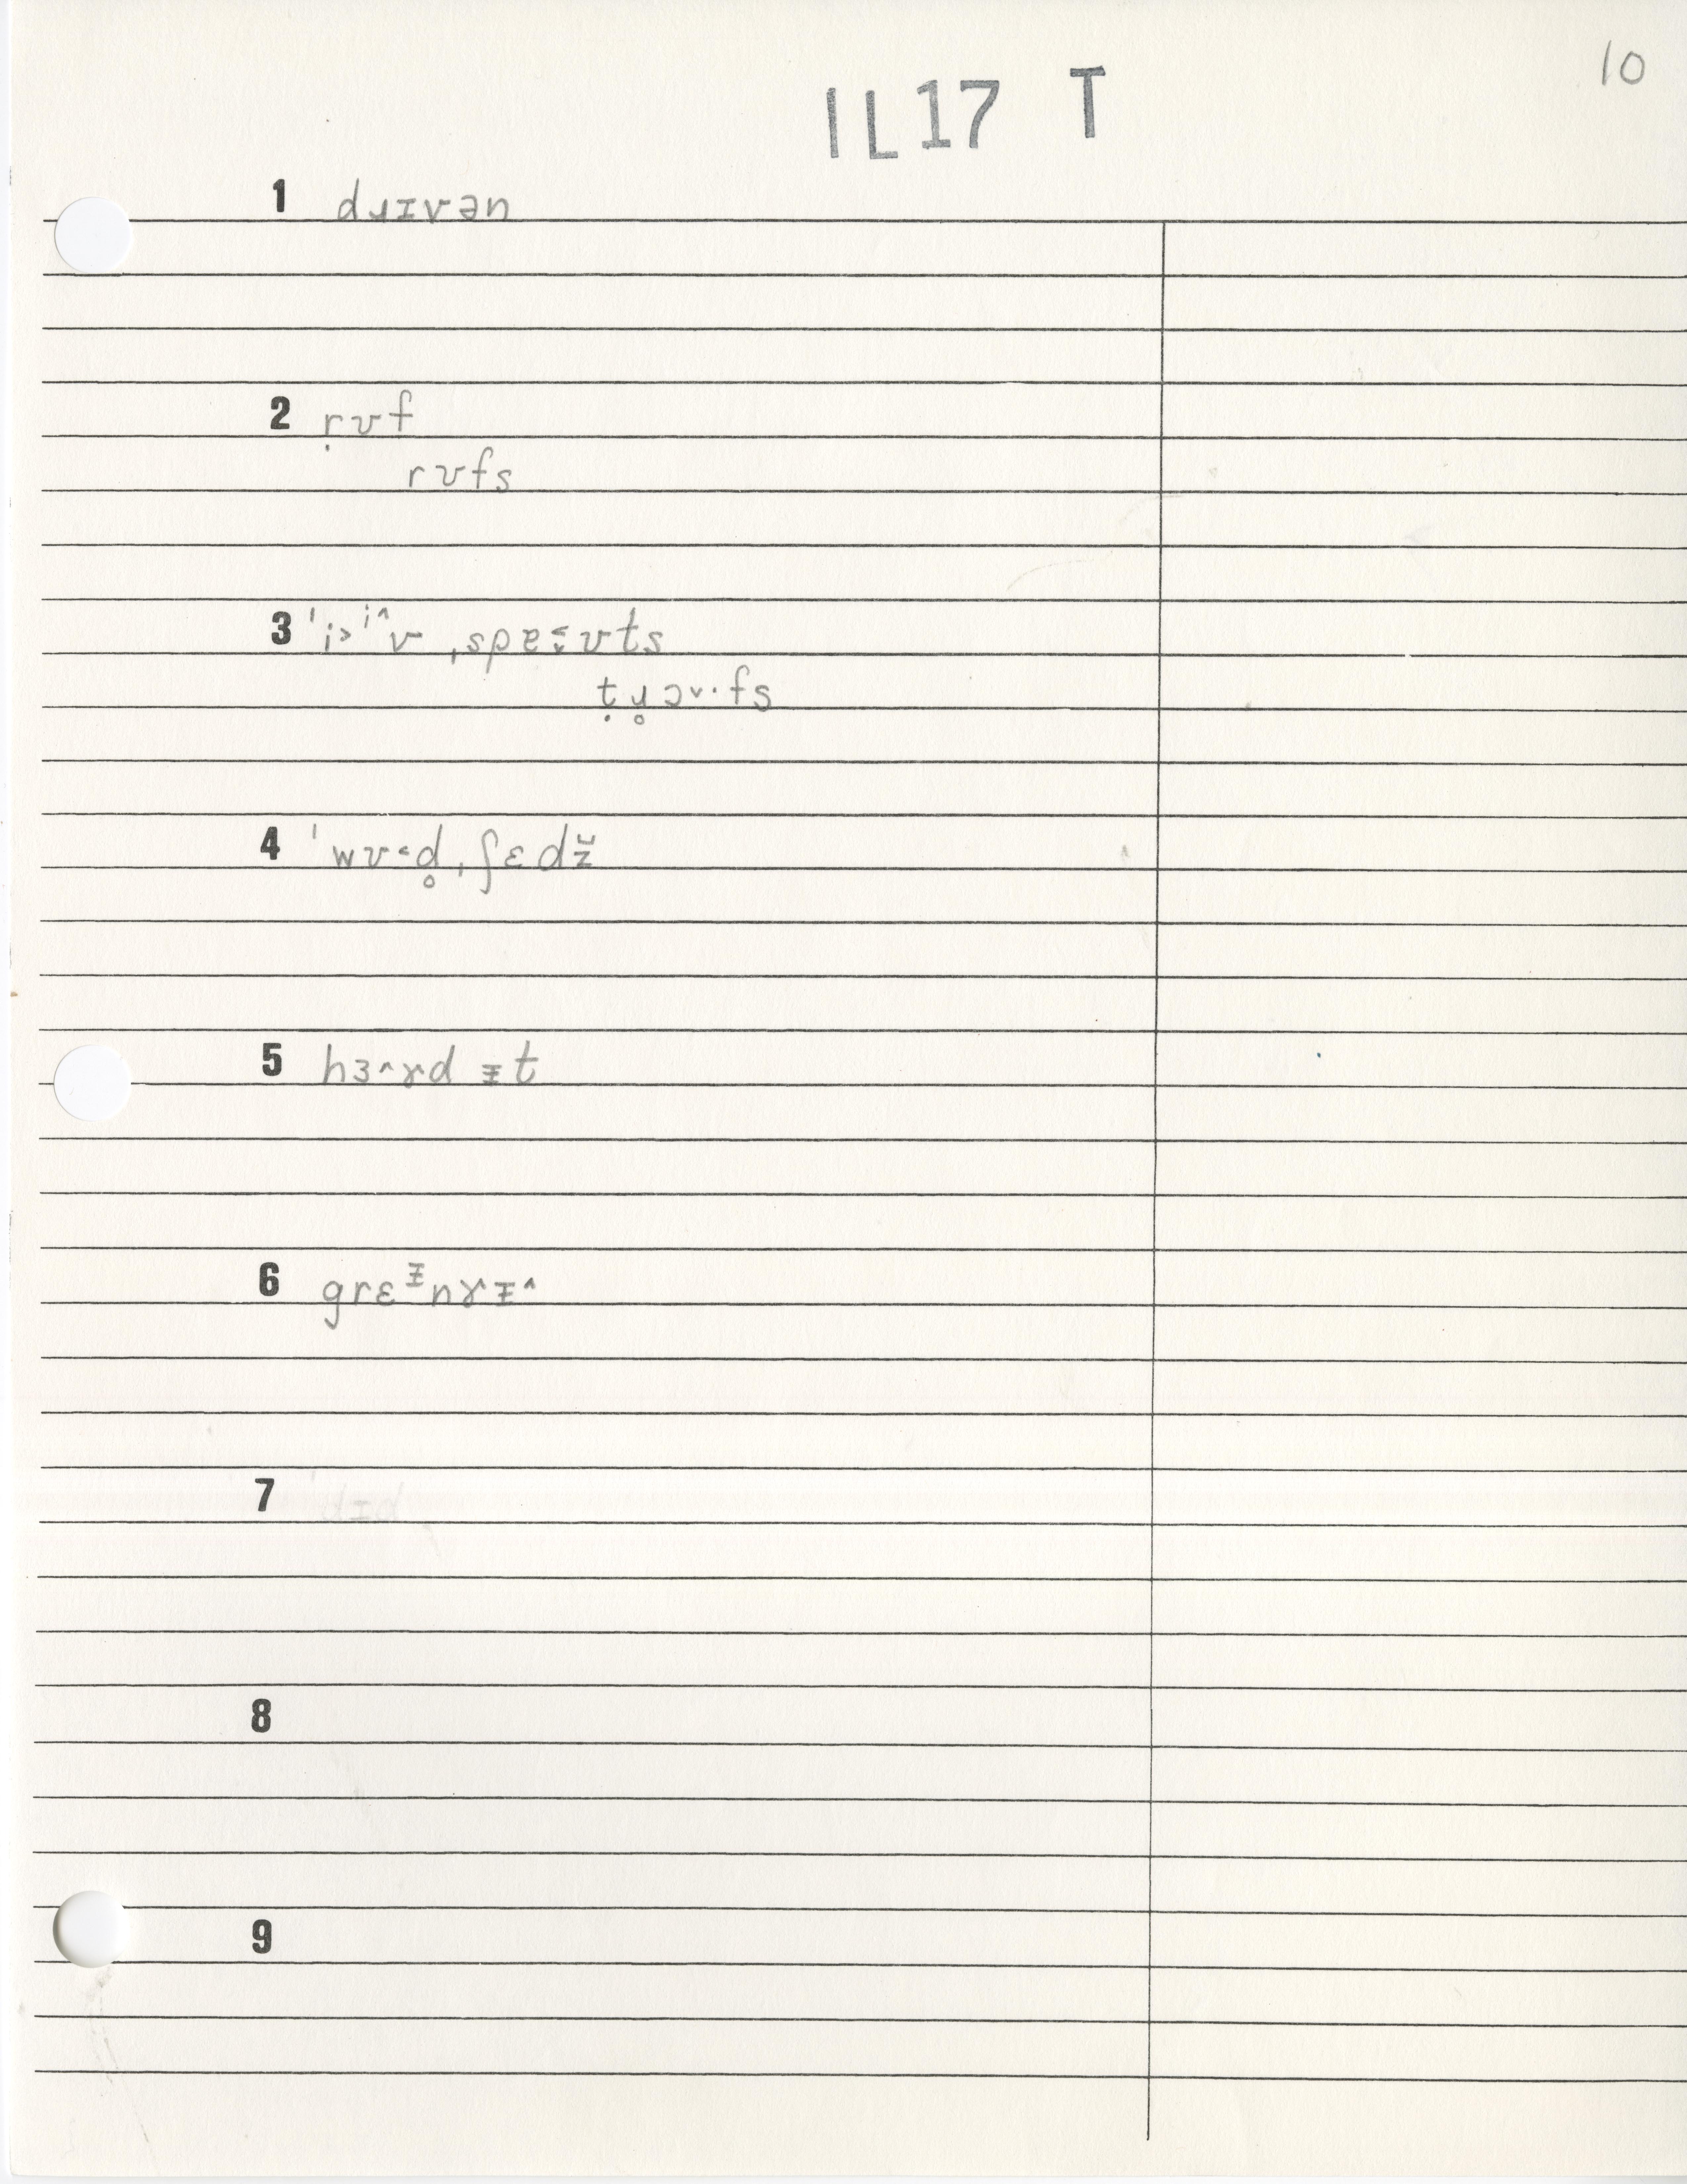 10
IL17 T
1 dɹɪvən
2 ṛʊf
rʊfs
3 ˈi˃ⁱ^v ˌspɐ˂̬ʊts
ṭɹ̥ɔ˅·fs
4 ˈwʊ˂d̥ ˌʃɛdž
5 hɜ^ɤd ᵻt
6 grɛᵻnɤᵻ^
7
8
9